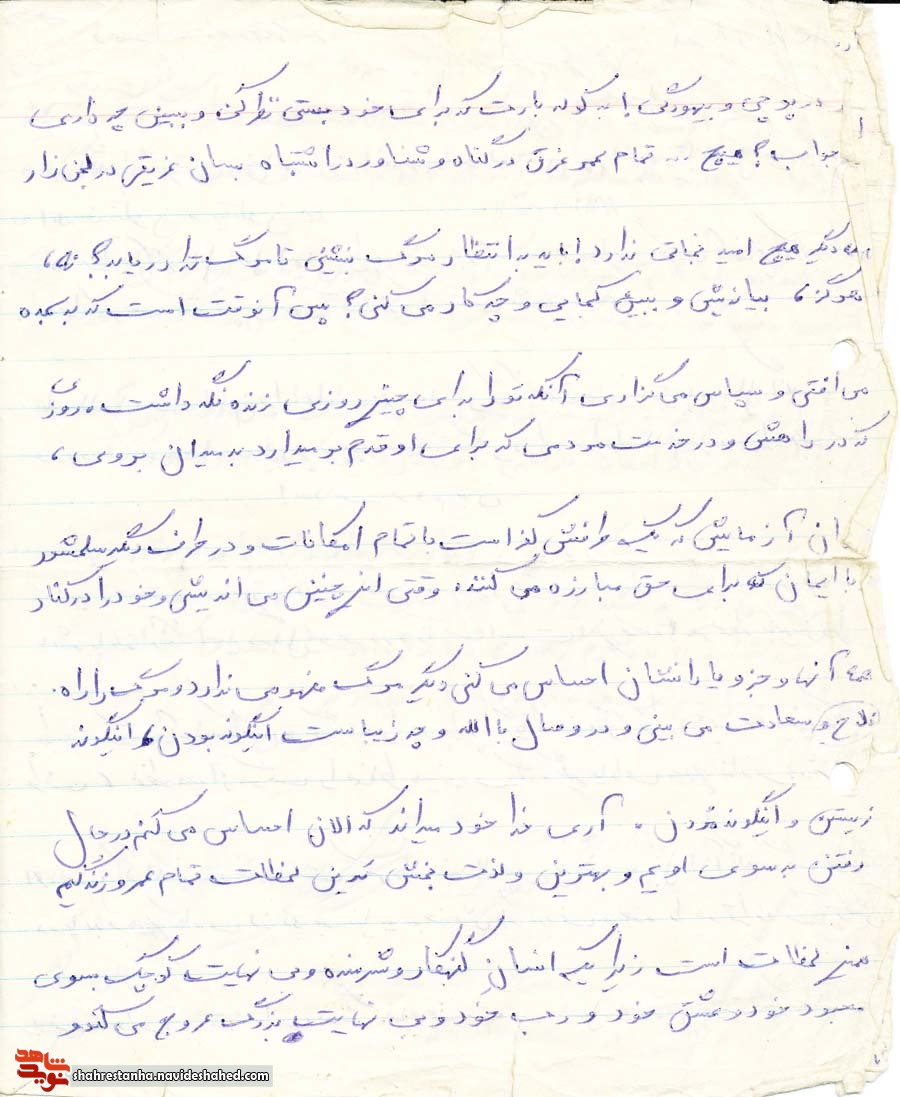 در پوچی و بیهودگی! به کوله بارت که برای خود بستی نظر کن و ببین چه داری
جواب؟ هیچ ... تمام عمر غرق در گناه و شناور در اشتباه بسان غریقی در لجن زار
که دیگر هیچ امید نجاتی ندارد! باید به انتظار مرگ بنشینی تا مرگ ترا دریابد؟ نه،
هرگز، بیاندیش و ببین کجایی و چه کار می کنی؟ پس آنوقت است که به سجده
می افتی و سپاس می گزاری آنکه تو را برای چنین روزی زنده نگه داشت، روزی
که در راهش و در خدمت مردمی که برای او قدم برمیدارد به میدان بروی،
آزمایش که یک طرفش کفر است با تمام امکانات و در طرف دیگر سلمشور
با ایمان که برای حق مبارزه می کنند، وقتی اینچنین می اندیشی و خود را در کنار
همه آنها و جزو یارانشان احساس می کنی دیگر مرگ مفهومی ندارد و مرگ را راه
فلاح و سعادت می بینی و در وصال باالله و چه زیباست اینگونه بودن، اینگونه
زیستن و اینگونه مردن، آری خدا خود میداند که الان احساس می کنم در حال
رفتن به سوی اویم و بهترین و لذت بخش ترین لحظات تمام عمر و زندگیم
همین لحظات است زیرا یک انسان گنهکار و شرمنده و بی نهایت کوچک بسوی
معبود خود و عشق خود و رب خود و بی نهایت بزرگ عروج می کند و
نوید شاهد
shahrestanha.navideshahed.com